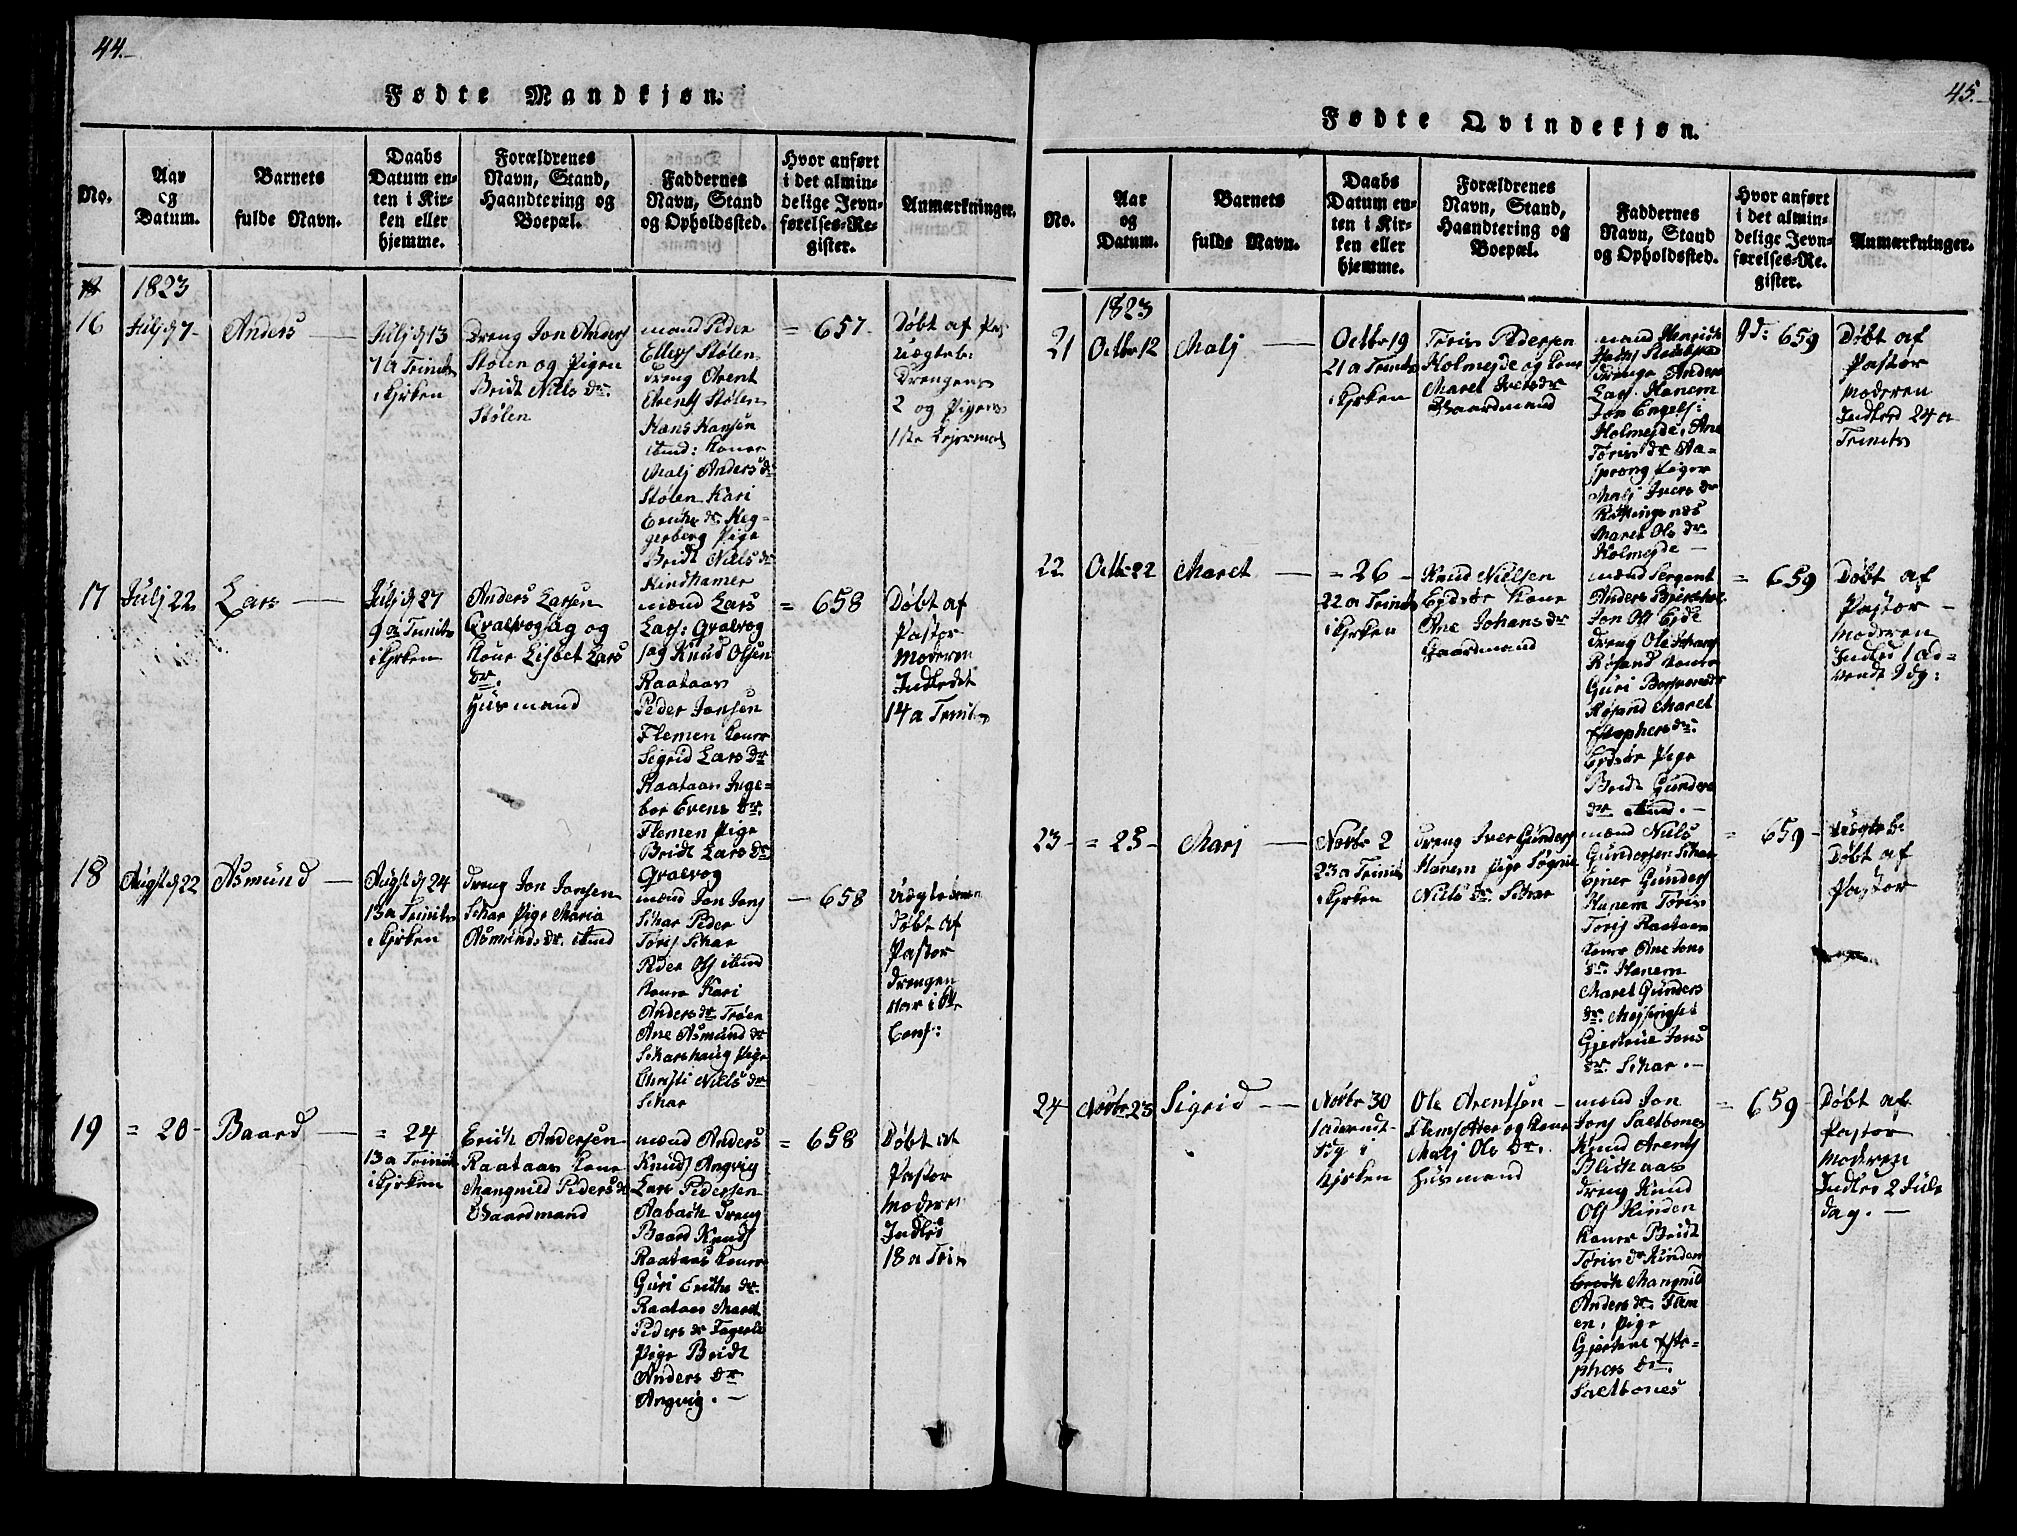 44.-
Fødte Mandkjøn.
No.
Aar
og
Datum.
Barnets
fulde Navn.
Daabs
Datum en-
ten i Kir-
ken eller
hjemme.
Forældrenes
Navn, Stand,
Haandtering og
Boepæl.
Faddernes
Navn, Stand
og Opholdssted.
Hvor anført
i det almin-
delige Jevn-
førelses-Re-
gister.
Anmærkninger.
1823
16
Julj d 7-
Anders
Julj d 13
7 a Trinits
i Kjrken
Dreng Jon Anders
Stølen og Pigen
Bridt Niels dr.
Stølen
mænd Peder
Ellefs Stølen
Dreng Arent
Arents Stølen
Hans Hansen
Koner
Malj Anders dr
Stølen Kari
Erichs dr. Heg-
gerberg Pige
Bridt Niels dr
Kindhamer
= 657-
Døbt af Pas
Uægte be
Drengens
2 og Pigens
1ste Lejermaal
17
Julj 22
Lars
Julj d 27
9 a Trinits
i Kjrken
Anders Larsen
Gralvogsåg og
Kone Lisbet Lars
dr.
Husmand
mænd Lars
Lars: Gralvog
sag Knud Olsen
Raataas
Peder Jonsen
Flemen Koner
Sigrid Lars dr
Raataas Inge-
bor Evens dr.
Flemen Pige
Bridt Lars dr
Gralvog
= 658
Døbt af
Pastor
Moderen
Indledet
14 a Trinits
18
Augst d 22
Asmund
Augst d 24
13 a Trinits
i Kjrken
Dreng Jon Jonsen
Schar Pige Maria
Asmunds dr.
mænd Jon Jons
Schar Peder
Toris Schar
Peder Ols
Kone Kari
Anders dr Trøen
Ane Asmund dr
Scharshaug Pige
Christi Niels dr
Schar
- 658
Døbt af
Pastor
Drengen
19
= 20-
Baard
= 24
13 a Trinits
i Kjrken
Erich Andersen
Raataas Kone
Mangnild Peders dr
Gaardmand
mænd Anders
Knuds Angvig
Lars Pedersen
Aabach Dreng
Baard Knuds
Raataas Koner
Guri Erichs dr.
Raataas Maret
Peders dr Fagerli
Pige Bridt
Anders dr
Angvig. -
= 658
Døbt af
Pastor
Moderen
Indled
18 a Trin
45.-
Fødte Qvindekjøn.
No.
Aar
og
Datum.
Barnets
fulde Navn.
Daabs
Datum en-
ten i Kir-
ken eller
hjemme.
Forældrenes
Navn, Stand,
Haandtering og
Boepæl.
Faddernes
Navn, Stand
og Opholdssted.
Hvor anført
i det almin-
delige Jevn-
førelses-Re-
gister.
Anmærkninger.
1823
21
Octbr 12
Malj
Octbr 19
21 a Trinits
i Kjrken
Toris Pedersen
Holmejde og Kone
Maret Ivers dr
Gaardmand
mænd Henrich
Drenge Anders
Lars. Hanem
Jon Engels:
Holmejde, Ane
Toris dr Aa-
sprong Piger
Malj Ivers dr
Maret Ols dr
Holmejde -
Id: 659
Døbt af
Pastor
Moderen
Indled 24 a
Trinits
22
Octbr 22
Maret
= 26 -
22 a Trinits
i Kjrken
Knud Nielsen
Ejdsør Kone
Ane Johans dr
Gaardmand
mænd Sergent
Anders
Jon Ols Ejde
Dreng Ole
Røsand Koner
Guri
Røsand Maret
Ejdsør Pige
Bridt Gunders
dr
= 659
Døbt af
Pastor -
Moderen
Indled 1 Ad-
vents Sdg:
23-
= 25-
Marj
Novbr 2
23 a Trinit
i Kjrken
Dreng Iver Gunders
Hanem Pige Søgnie
Niels dr. Schar
mænd Niels
Gundersen Schar
Ejner Gunders
Hanem Toris
Toris Raataas
Koner Ane Jons
dr. Hanem
Maret Gunders
dr. Mejsingset
Gjertrue Jons
dr. Schar. -
= 659 -
Uægte be
Døbt af
Pastor
24
Novbr 23
Sigrid
Novbr 30
Kjrken
Ole Arentsen -
Flemsæter og Kone
Malj Ols dr.
Husmand
mænd Jon
Jons Saltbones
Knud Arents
Blichaas
Dreng Knud
Ols Hinden
Koner Bridt
Toris dr Hinden
Mangnild
Anders dr. Flem
en, Pige
Gjertrue Kste-
phers dr.
Saltbones
= 659 -
Døbt af
Pastor
Moderen
Indled 2 Jule
dag. -